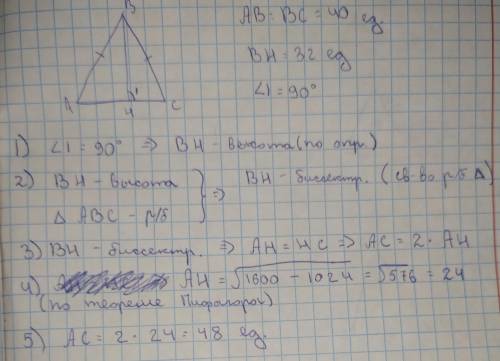 B
A
H
C
1
AB = BC = 40 ед.
BH = 32 ед
∠1 = 90°
1) ∠1 = 90° ⇒ BH - высота (по опр.)
2) BH - высота
Δ ABC - р/б
} ⇒ BH - биссектр. (св-во р/б Δ)
3) BH - биссектр. ⇒ AH = HC ⇒ AC = 2 · AH
4) AH = √1600 - 1024 = √576 = 24
(по теореме Пифагора)
5) AC = 2 · 24 = 48 ед.